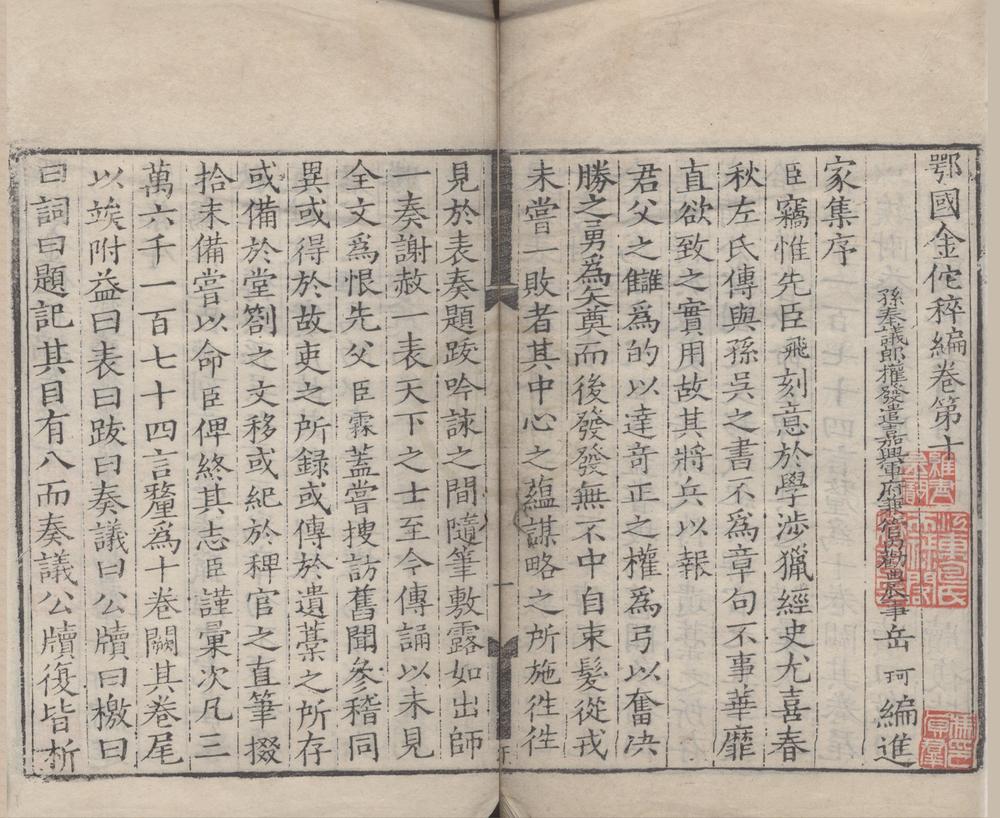 鄂國金佗稡編卷第十
孫奉議郎權發遣嘉興軍府兼管內勸農事岳珂編進
家集序
臣竊惟先臣飛刻意於學涉獵經史尤喜春
秋左氏傳與孫吳之書不為章句不事華靡
直欲致之實用故其將兵以報
君父之讎為的以達奇正之權為弓以奮決
勝之勇為矢奠而後發發無不中自束髮從戎
未嘗一敗者其中心之蘊謀略之所施徃徃
見於表奏題跋吟詠之間隨筆敷露如出師
一奏謝赦一表天下之士至今傳誦以未見
全文為恨先父臣霖蓋嘗搜訪舊聞參稽同
異或得於故吏之所録或傳於遺藁之所存
或備於堂劄之文移或紀於稗官之直筆掇
拾未備嘗以命臣俾終其志臣謹彙次凡三
萬六千一百七十四言釐為十卷闕其卷尾
以竢附益曰表曰跋曰奏議曰公牘曰檄曰
曰詞曰題記其目有八而奏議公牘復皆析